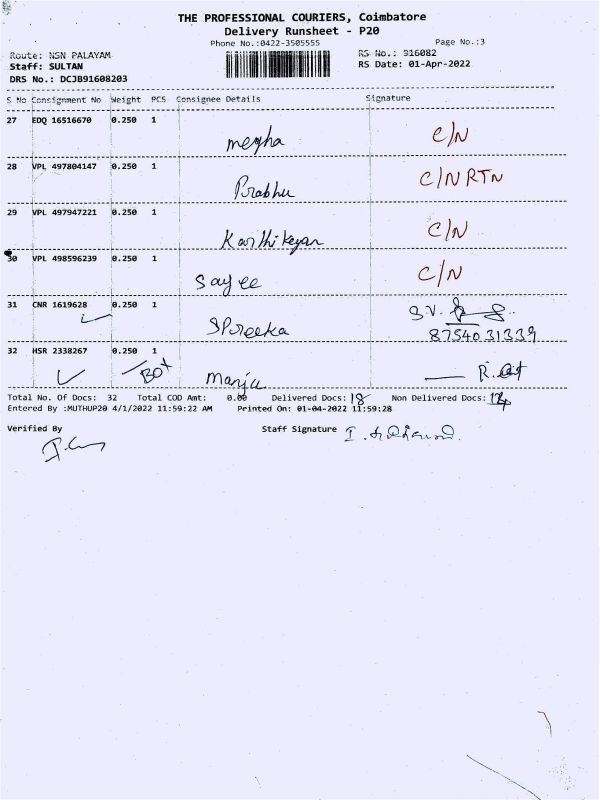 THE PROFESSIONAL COURIERS, Coimbatore
Delivery Runsheet - P20
Phone No.:0422-3505555 Page No.:3
Route: NSN PALAYAM RS No.: 916082
Staff: SULTAN RS Date: 01-Apr-2022
DRS No.: DCJB91608203
S No Consignment No Weight PCS Consignee Details Signature
27 EDQ 16516670 0.250 1
megha C/N
28 VPL 497804147 0.250 1
Prabhu C/N RTN
29 VPL 497947221 0.250 1
Karthikeyan C/N
30 VPL 498596239 0.250 1
Sayee C/N
31 CNR 1619628 0.250 1
S.V.
8754031339
32 HSR 2338267 0.250 1
Manju
Total No. Of Docs: 32 Total COD Amt: 0.00 Delivered Docs: 18 Non Delivered Docs: 14
Entered By :MUTHUP20 4/1/2022 11:59:22 AM Printed On: 01-04-2022 11:59:28
Verified By Staff Signature